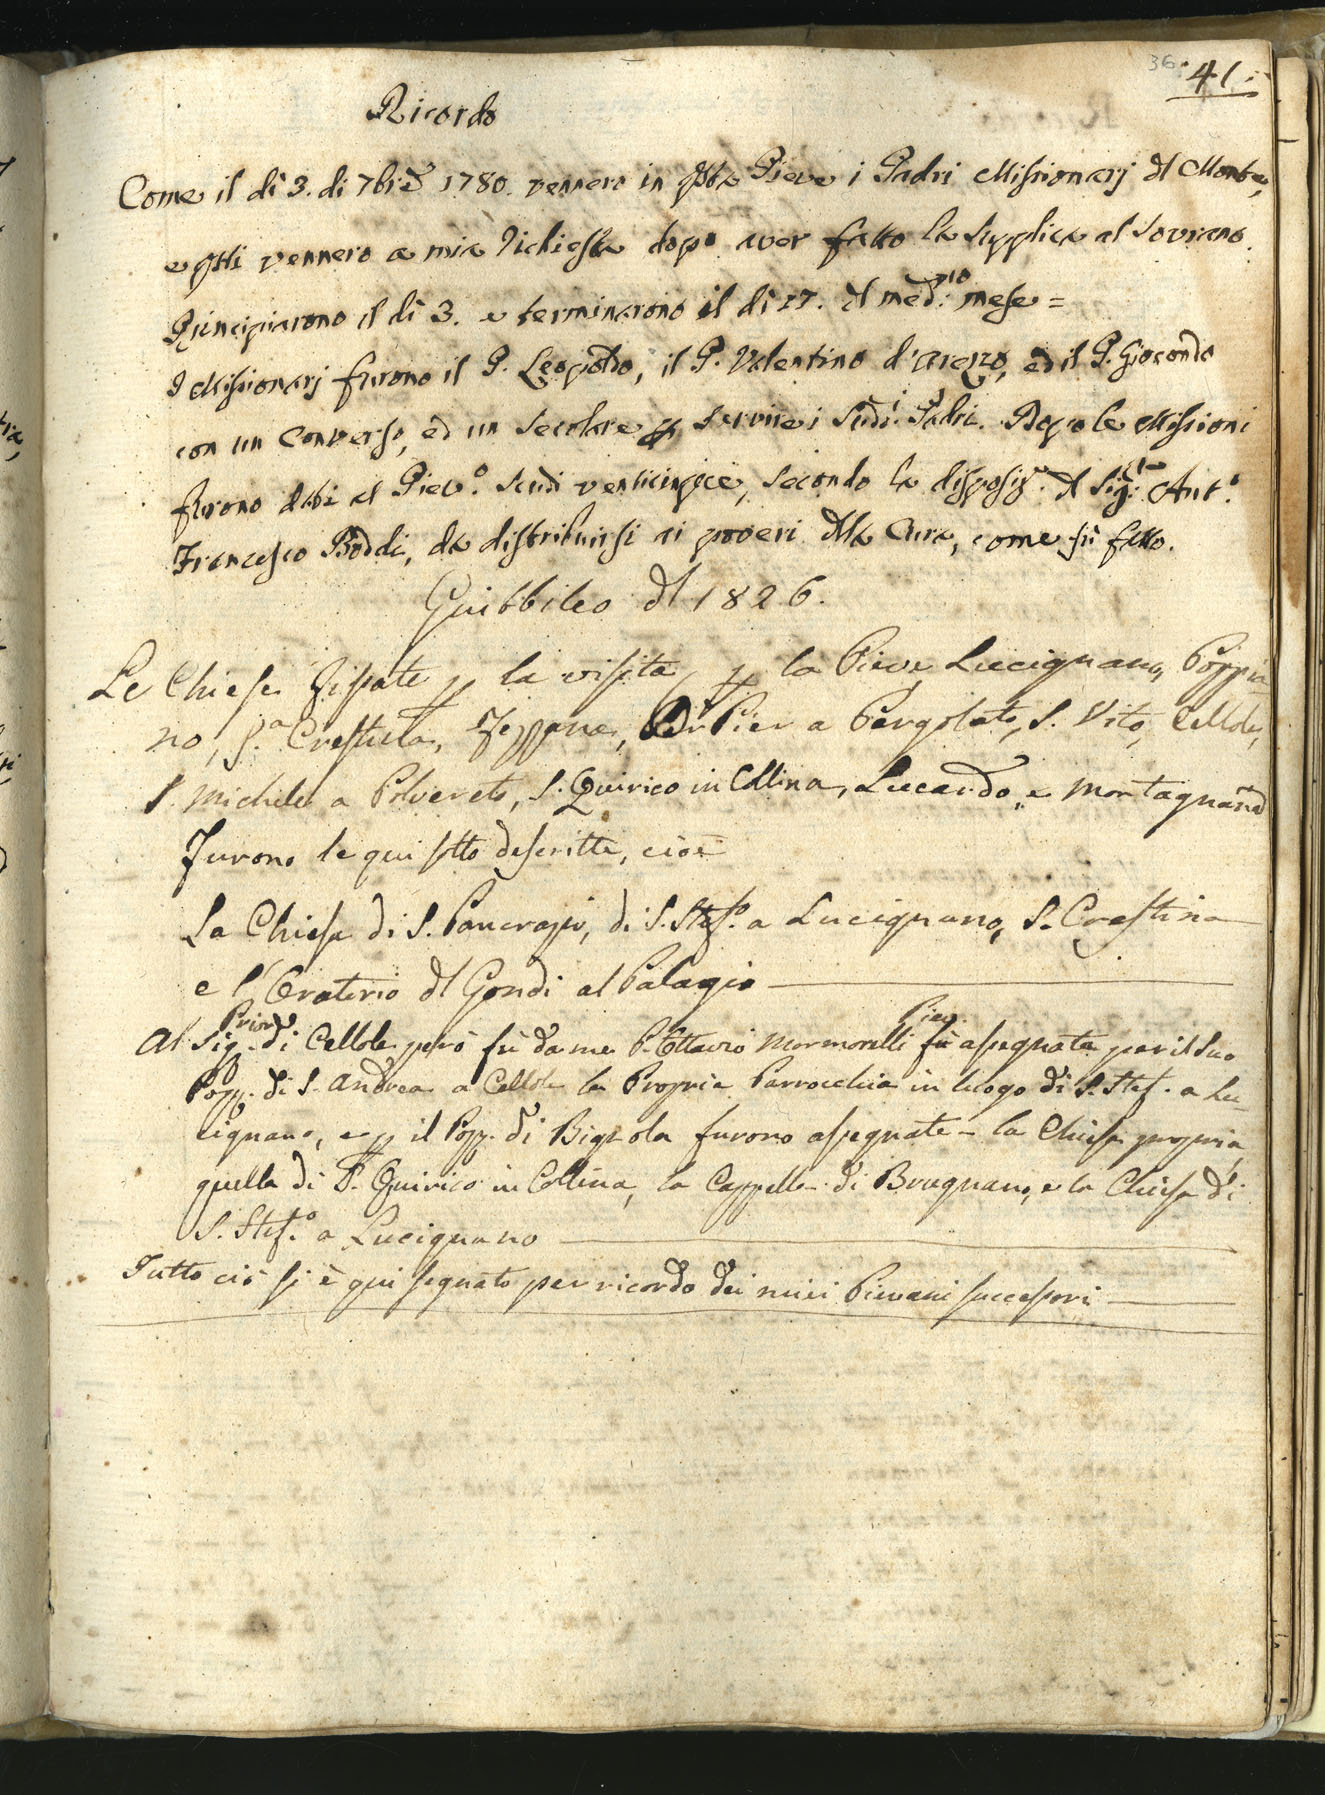 36. 41.
Ricordo
Come il dì 3. di 7bre 1780. vennero in qsta Pieve i Padri Missionarj dl Monte,
e qsti vennero a mia richiesta dopo aver fatto la supplica al Sovrano.
Principiarono il dì 3. e terminarono il dì 17. dl med:mo mese =
I Missionarj furono il P. Leopoldo, il P. Valentino d'Arezzo, ed il P. Giocondo
con un Converso, ed un secolare p servire i sudi. Padri. Dopo le Missioni
furono dati al Piev.o scudi venticinque, secondo la disposiz. dl Sig: Ant.o
Francesco Boddi, da distribuirsi ai poveri dlla Cura, come fù fatto.
Guibbileo dl 1826.
Le Chiese fissate p la visita p la Pieve Lucignano, Poppia
no, S.a Crestina, Fezzana, S. Pier a Pergolato, S. Vito, Cellole,
S. Michele a Polvereto, S. Quirico in Collina, Lucardo, e Montagnana
Furono le qui sotto descritte, cioè
La Chiesa di S. Pancrazio, di S. Stef.o a Lucignano, S. Crestina
e l'Oratorio dl Gondi al Palagio
Al Sig. Priore di Cellole però fù da me P. Ottavio Mormorelli Piev. fù assegnata per il suo
Pop. di S. Andrea a Cellole la Propria Parrocchia in luogo di S. Stef. a Lu-
cignano, e p il Pop. di Bignola furono assegnate - la Chiesa propria,
quella di S. Quirico in Collina, la Cappella di Brugnano, e la Chiesa di
S. Stef.o a Lucignano
Tutto ciò si è qui segnato per ricordo dei miei Pievani successori